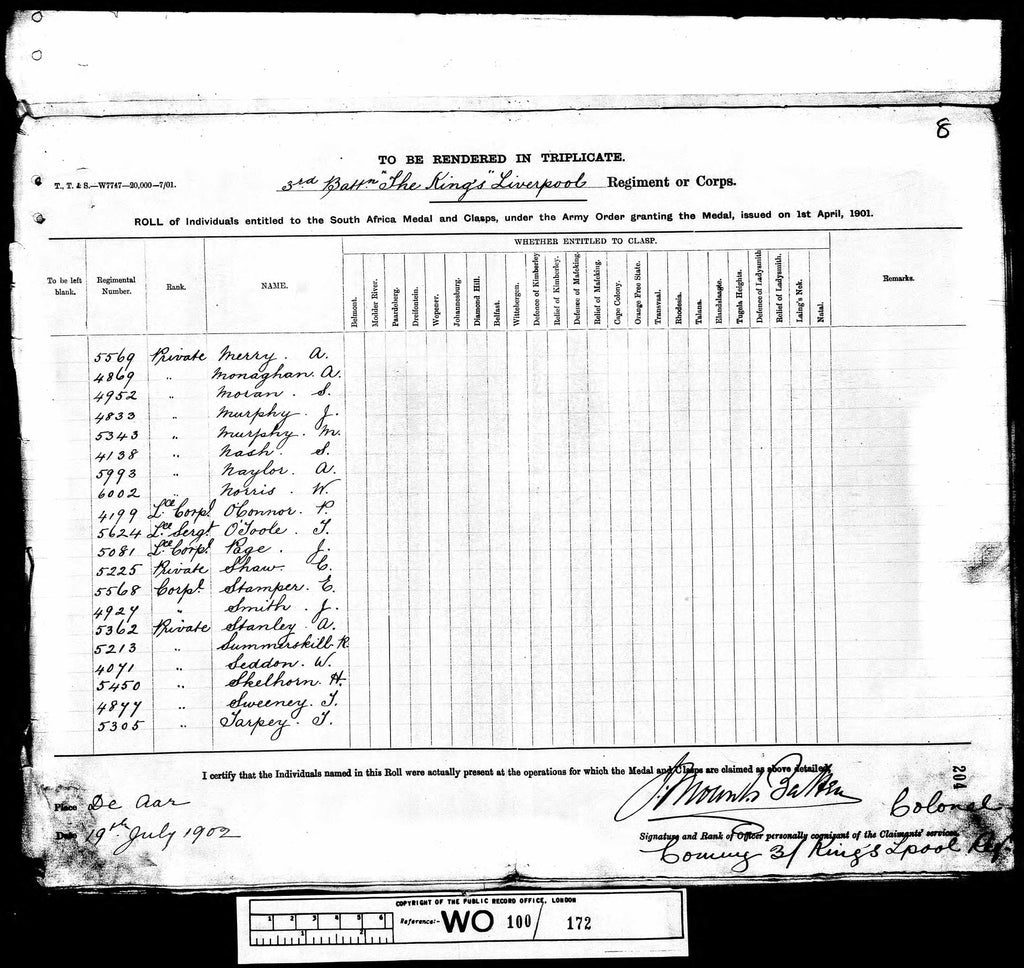 8
TO BE RENDERED IN TRIPLICATE.
T., T. & S.—W7747—20,000—7/01.
3rd Battn "The King's" Liverpool Regiment or Corps.
ROLL of Individuals entitled to the South Africa Medal and Clasps, under the Army Order granting the Medal, issued on 1st April, 1901.
WHETHER ENTITLED TO CLASP.
To be left blank. Regimental Number. Rank. NAME. Belmont. Modder River. Paardeberg. Dreifontein. Wepener. Johannesburg. Diamond Hill. Belfast. Wittebergen. Defence of Kimberley. Relief of Kimberley. Defence of Mafeking. Relief of Mafeking. Cape Colony. Orange Free State. Transvaal. Rhodesia. Talana. Elandslaagte. Tugela Heights. Defence of Ladysmith. Relief of Ladysmith. Laing's Nek. Natal. Remarks.
5569 Private Merry. A.
4869 " Monaghan. A.
4952 " Moran. S.
4833 " Murphy. J.
5343 " Murphy. M.
4138 " Nash. S.
5993 " Naylor. A.
6002 " Norris. W.
4199 Lce Corpl. O'Connor. P.
5624 Lce Sergt O'Toole. T.
5081 Lce Corpl. Page. J.
5225 Private Shaw. C.
5568 Corpl. Stamper. E.
4927 " Smith. J.
5362 Private Stanley. A.
5213 " Summerskill. R
4071 " Seddon. W.
5450 " Skelhorn. H.
4877 " Sweeney. T.
5305 " Tarpey. T.
I certify that the Individuals named in this Roll were actually present at the operations for which the Medal and Clasps are claimed as above detailed.
204
Place De Aar
Colonel
Date 19th July 1902
Signature and Rank of Officer personally cognisant of the Claimants' services.
Commg 3/ King's Lpool Regt.
COPYRIGHT OF THE PUBLIC RECORD OFFICE, LONDON
1 2 3 4 5 6
Reference:- WO 100/ 172
1 2